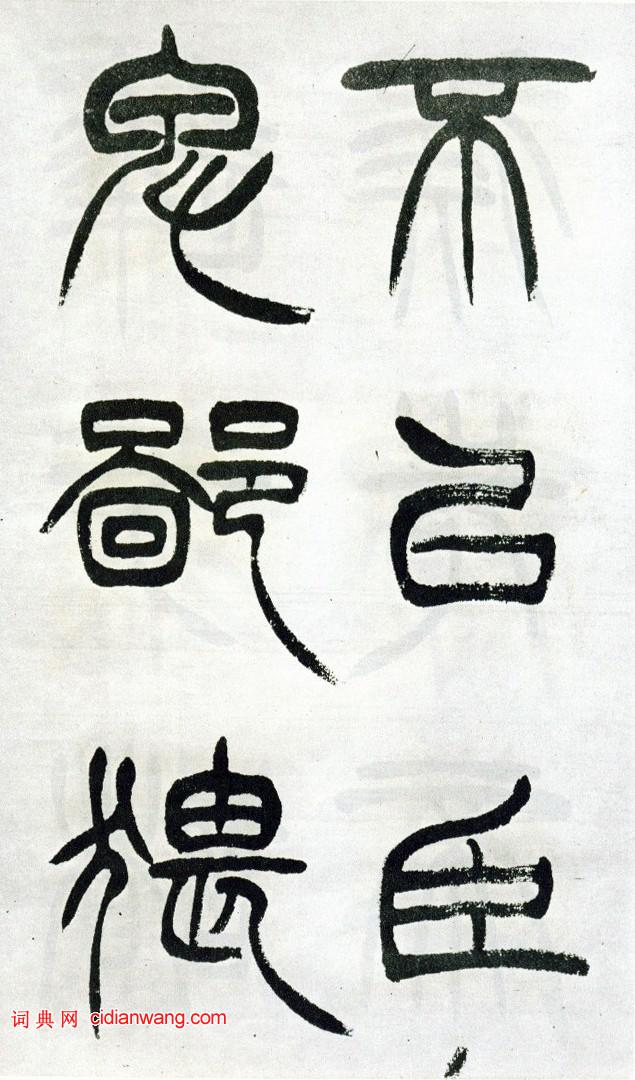 不㠯臣
卑鄙猥
词典网 cidianwang.com